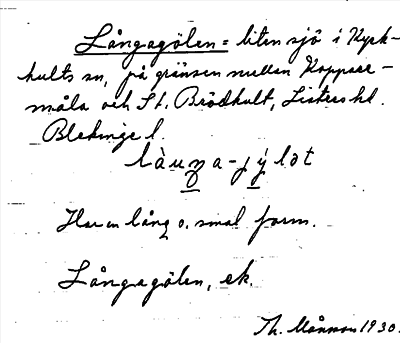 Långagölen = liten sjö i Kyrk-
hults sn, på gränsen mellan Koppare-
måla och St. Brödhult, Listers hd.
Blekinge l.
làuŋa-jýlət
Har en lång o. smal form.
Långagölen, ek.
Th. Månsson 1930.